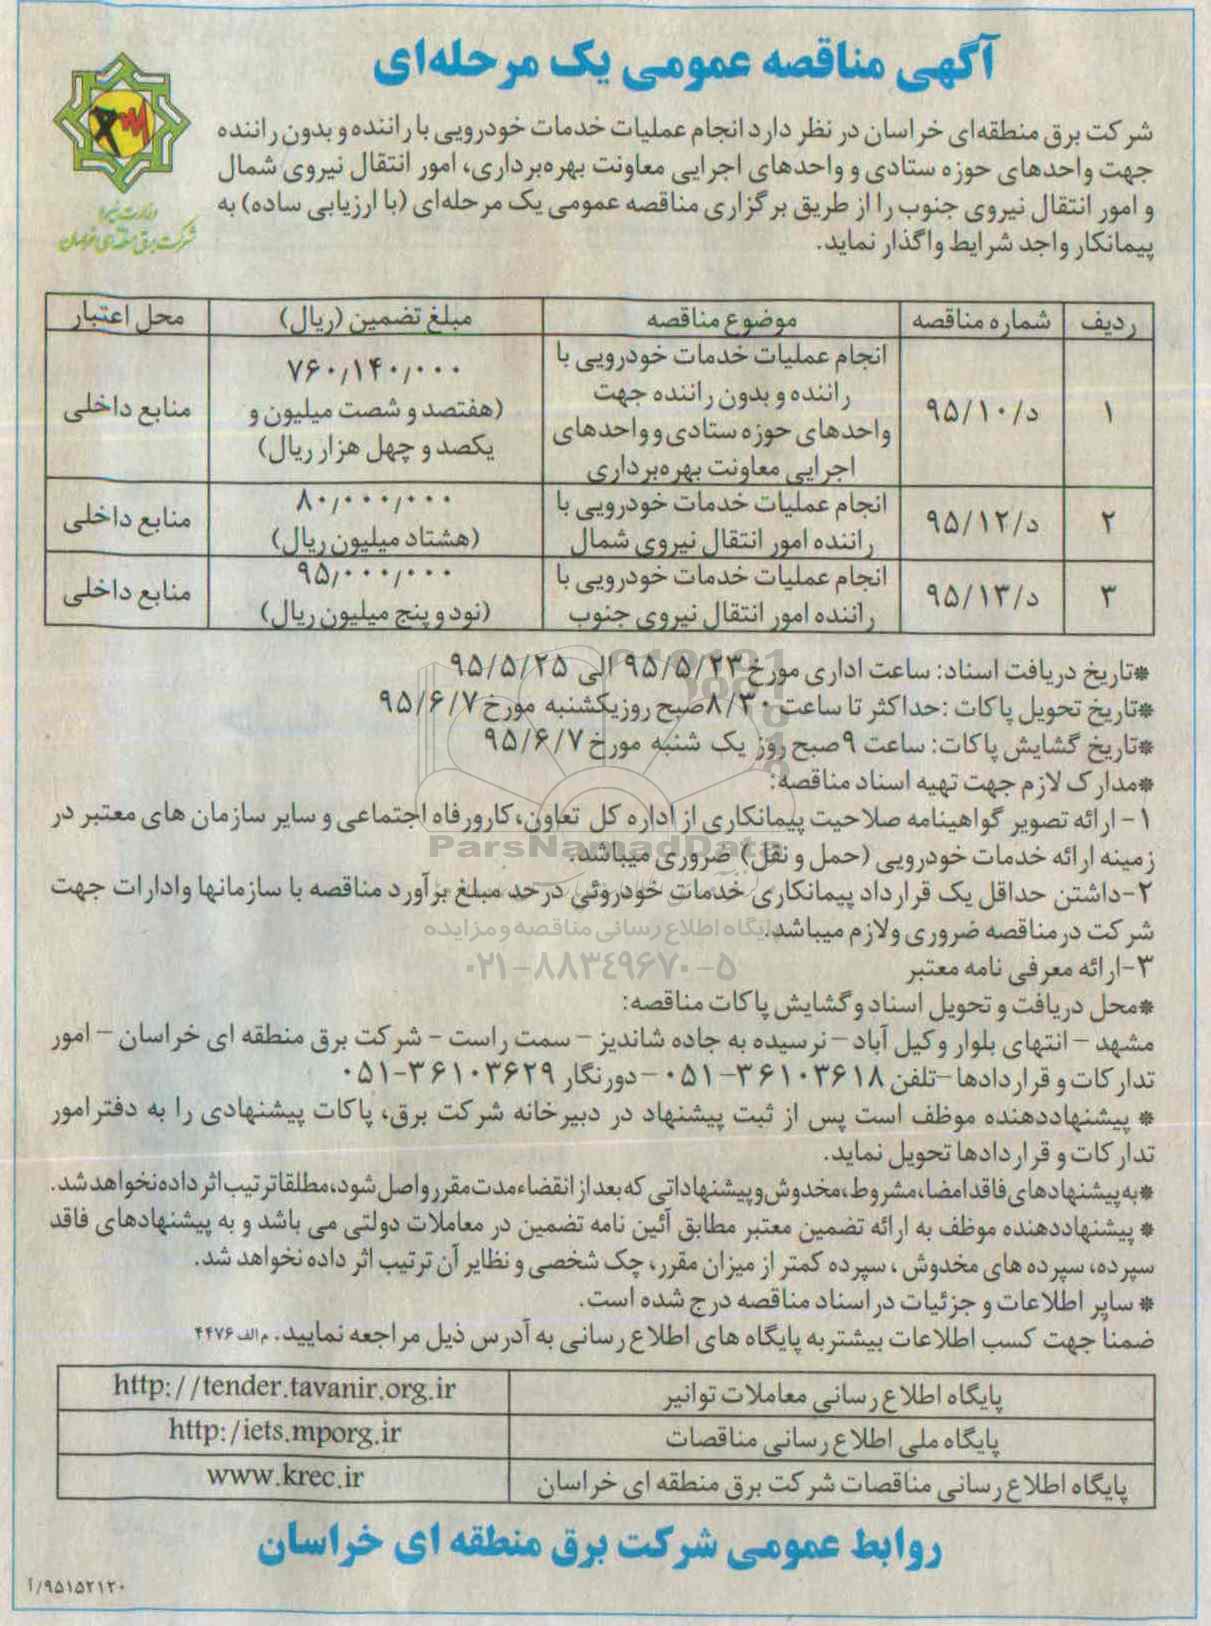 آگهی مناقصه عمومی یک مرحله‌ای
وزارت نیرو
شرکت برق منطقه‌ای خراسان
شرکت برق منطقه‌ای خراسان در نظر دارد انجام عملیات خدمات خودرویی با راننده و بدون راننده
جهت واحدهای حوزه ستادی و واحدهای اجرایی معاونت بهره‌برداری، امور انتقال نیروی شمال
و امور انتقال نیروی جنوب را از طریق برگزاری مناقصه عمومی یک مرحله‌ای (با ارزیابی ساده) به
پیمانکار واجد شرایط واگذار نماید.
ردیف شماره مناقصه موضوع مناقصه مبلغ تضمین (ریال) محل اعتبار
۱ د/۹۵/۱۰ انجام عملیات خدمات خودرویی با
راننده و بدون راننده جهت
واحدهای حوزه ستادی و واحدهای
اجرایی معاونت بهره‌برداری
۷۶۰/۱۴۰/۰۰۰
(هفتصد و شصت میلیون و
یکصد و چهل هزار ریال)
منابع داخلی
۲ د/۹۵/۱۲ انجام عملیات خدمات خودرویی با
راننده امور انتقال نیروی شمال
۸۰/۰۰۰/۰۰۰
(هشتاد میلیون ریال)
منابع داخلی
۳ د/۹۵/۱۳ انجام عملیات خدمات خودرویی با
راننده امور انتقال نیروی جنوب
۹۵/۰۰۰/۰۰۰
(نود و پنج میلیون ریال)
منابع داخلی
*تاریخ دریافت اسناد: ساعت اداری مورخ ۹۵/۵/۲۳ الی ۹۵/۵/۲۵
*تاریخ تحویل پاکات :حداکثر تا ساعت ۸/۳۰ صبح روزیکشنبه مورخ ۹۵/۶/۷
*تاریخ گشایش پاکات: ساعت ۹ صبح روز یک شنبه مورخ ۹۵/۶/۷
*مدارک لازم جهت تهیه اسناد مناقصه:
۱- ارائه تصویر گواهینامه صلاحیت پیمانکاری از اداره کل تعاون،کارورفاه اجتماعی و سایر سازمان های معتبر در
زمینه ارائه خدمات خودرویی (حمل و نقل) ضروری میباشد.
۲-داشتن حداقل یک قرارداد پیمانکاری خدمات خودروئی درحد مبلغ برآورد مناقصه با سازمانها وادارات جهت
شرکت درمناقصه ضروری ولازم میباشد.
۳-ارائه معرفی نامه معتبر
*محل دریافت و تحویل اسناد وگشایش پاکات مناقصه:
مشهد – انتهای بلوار وکیل آباد – نرسیده به جاده شاندیز – سمت راست - شرکت برق منطقه ای خراسان – امور
تدارکات و قراردادها –تلفن ۳۶۱۰۳۶۱۸-۰۵۱ –دورنگار ۳۶۱۰۳۶۲۹-۰۵۱
* پیشنهاددهنده موظف است پس از ثبت پیشنهاد در دبیرخانه شرکت برق، پاکات پیشنهادی را به دفترامور
تدارکات و قراردادها تحویل نماید.
*به‌پیشنهادهای‌فاقدامضا،مشروط،مخدوش‌وپیشنهاداتی که‌بعداز انقضاءمدت‌مقررواصل‌شود،مطلقاترتیب‌اثرداده‌نخواهدشد.
* پیشنهاددهنده موظف به ارائه تضمین معتبر مطابق آئین نامه تضمین در معاملات دولتی می باشد و به پیشنهادهای فاقد
سپرده، سپرده های مخدوش ، سپرده کمتر از میزان مقرر، چک شخصی و نظایر آن ترتیب اثر داده نخواهد شد.
* سایر اطلاعات و جزئیات در اسناد مناقصه درج شده است.
ضمنا جهت کسب اطلاعات بیشتر به پایگاه های اطلاع رسانی به آدرس ذیل مراجعه نمایید. م الف ۴۴۷۶
پایگاه اطلاع رسانی معاملات توانیر http://tender.tavanir.org.ir
پایگاه ملی اطلاع رسانی مناقصات http:/iets.mporg.ir
پایگاه اطلاع رسانی مناقصات شرکت برق منطقه ای خراسان www.krec.ir
روابط عمومی شرکت برق منطقه ای خراسان
۹۵۱۵۲۱۲۰/آ
ParsNamadData
پایگاه اطلاع رسانی مناقصه و مزایده
۰۲۱-۸۸۳۴۹۶۷۰-۵